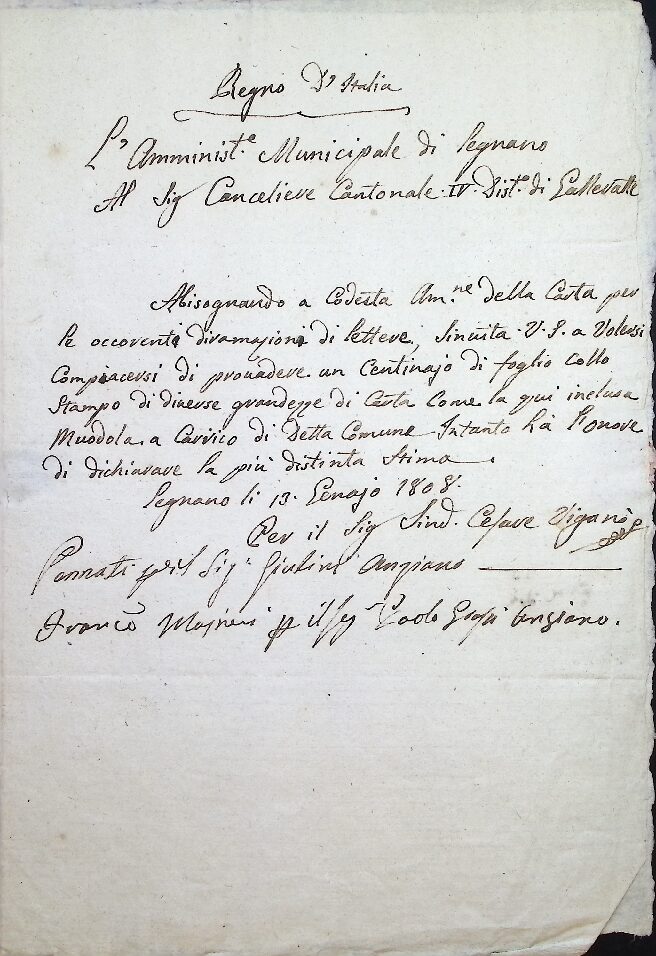 Regno D'Italia
L'Amminist.e Municipale di Legnano
Al Sig Canceliere Cantonale IV. Dist.o di Galleratte
Abisognando a Codesta Am.ne della Carta per
le occorenti diramazioni di lettere, sinuita V.S. a Volersi
Compiacersi di prouadere un Centinajo di foglio collo
Stampo di diuerse grandezze di Carta Come la qui inclusa
Muodola a Carrico di Detta Comune Intanto hà l'onore
di dichiarare la più distinta Stima.
Legnano li 13. Genajo 1808.
Per il Sig Sind. Cesare Viganò
Pennati p il Sig. Giulini Anziano
Franco p il Sig Paolo Anziano.